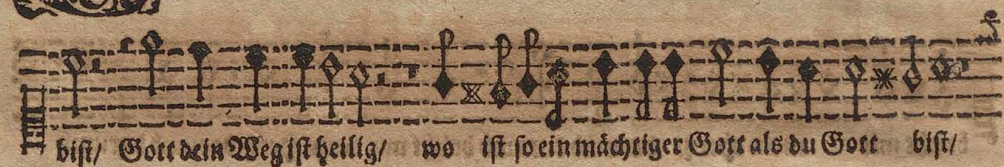 bist/ Gott dein Weg ist heilig/ wo ist so ein mächtiger Gott als du Gott bist/